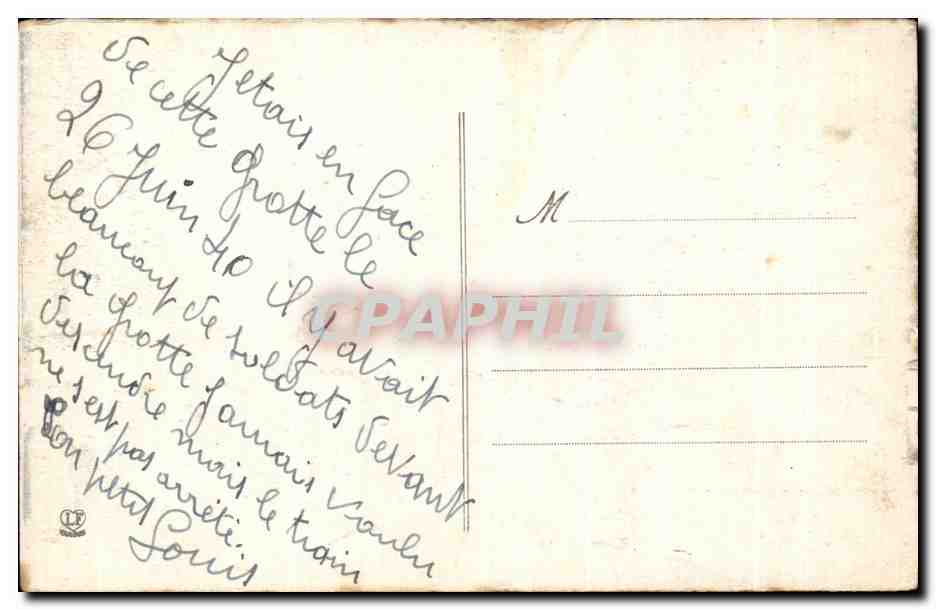 Jetais en face
de cette grotte le
26 Juin 40 il y avait
beaucoup de soldats devant
la grotte J'aurais voulu
descendre mais le train
ne s'est pas arrêté.
Ton petit
Louis
M
LF
CPAPHIL